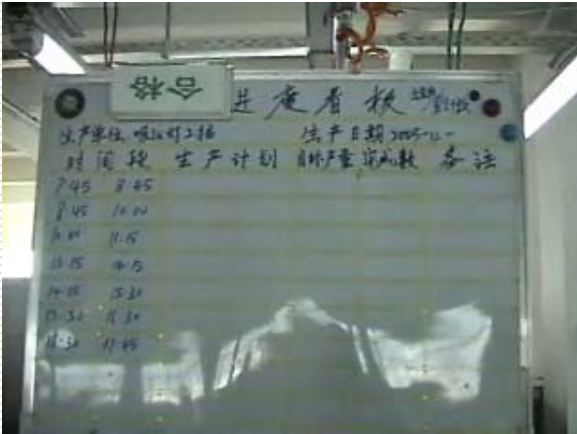 合格
进度看板
生产单位 吸 灯工拉 生产日期 2005-11-
时间段 生产计划 目标产量 完成数 备注
7:45 8:45
8:45 10:00
10:00 11:15
13:15 14:15
14:15 15:30
15:30 16:30
16:30 17:45